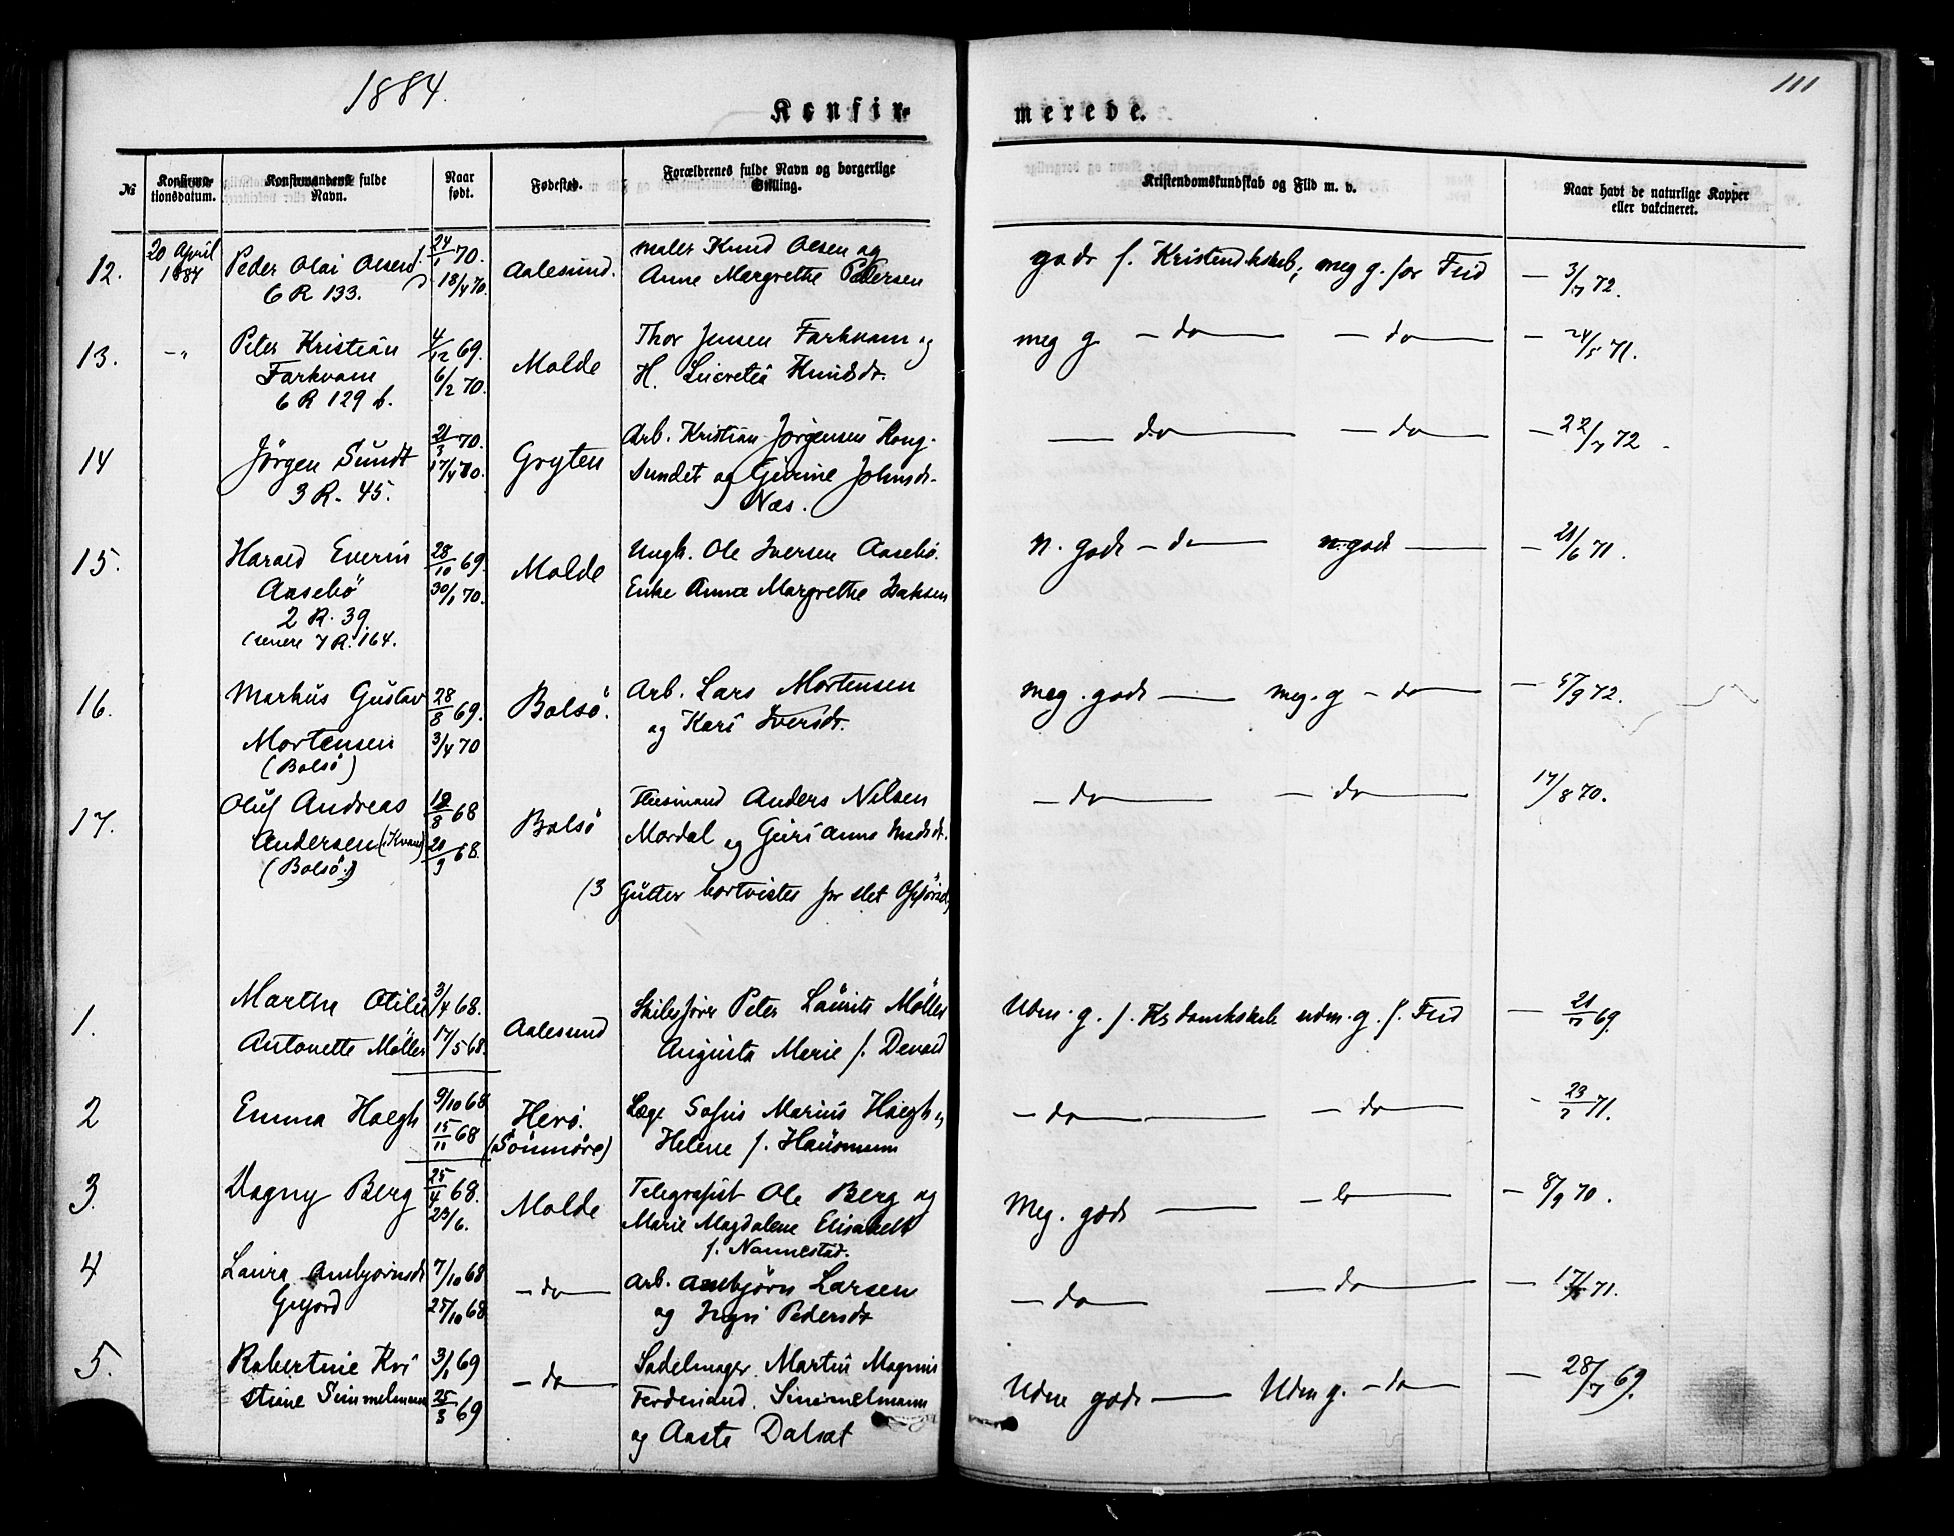 1884.
111
Konfir-
merede.
№
Konfirma-
tionsdatum.
Konfirmandens fulde
Navn.
Naar
født.
Fødested.
Forældrenes fulde Navn og borgerlige
Stilling.
Kristendomskundskab og Flid m. v.
Naar havt de naturlige Kopper
eller vakcineret.
12.
20 April
1884
Peder Olai Olsen
6 R 133.
24/1 70.
18/4 70.
Aalesund.
Maler Knud Olsen og
Anne Margrethe Pedersen
godt f. Kristendkskab; meg g. for Flid
- 3/7 72.
13.
-"
Peter Kristian
Farkvam
6 R 129 b.
4/12 69.
6/2 70.
Molde
Thor Jensen Farkvam og
H. Lucretia Knudsdt.
meg g - do - - do -
- 24/5 71.
14
Jörgen Sundt
3 R. 45.
21/3 70.
17/4 70.
Gryten
Arb. Kristian Jörgensen Kong-
sundet og Gurine Johnsdt.
Næs.
- do - - do -
- 22/7 72
15.
Harald Everin
Aasebö
2 R. 39
(senere 7 R. 164.
28/10 69.
30/1 70.
Molde
Ungk. Ole Iversen Aasebö.
Enke Anna Margrethe Isaksen
n. godt - do - n. godt -
- 21/6 71.
16.
Markus Gustav
Mortensen
(Bolsö)
28/8 69.
3/4 70
Bolsö.
Arb. Lars Mortensen
og Kari Iversdt.
meg. godt - meg. g - do -
- 17/9 72.
17.
Oluf Andreas
Andersen (Kvam)
(Bolsö)
18/8 68
20/9 68.
Bolsö
Husmand Anders Nilsen
Mordal og Guri
- do - - do -
17/8 70.
(3 Gutter bortvistes for slet Opförsel)
1.
Martha Otilie
Antonette Möller
3/4 68.
17/5 68.
Aalesund
Skibsförer Peter Laurits Möller
Augusta Marie f. Devold
Udm. g. f. Krdomskskab udm. g. f. Flid
- 21/7 69.
2
Emma Hoegh
9/10 68
15/11 68
Herö.
(Söndmöre)
Læge Sofus Marius Höegh og
Helene f. Hausmann
- do - - do -
- 23/7 71.
3.
Dagny Berg
25/4 68.
23/6.
Molde
Telegrafist Ole Berg og
Marie Magdalene Elisabeth
f. Nannestad.
Meg. godt - - do -
- 8/9 70.
4
Laura Ambjörnsdt
Gujord
7/10 68
25/10 68
- do -
Arb. Ambjörn Larsen
og Ingri Pedersdt
- do - - do -
- 17/ 71.
5.
Robertine Kri
stiane Simmelmann
3/1 69
25/3 69
- do -
Sadelmager Martin Magnus
Ferdinand Simmelmann
og Aasta Dalsat
Udm godt - Udm g. - do -
- 28/7 69.